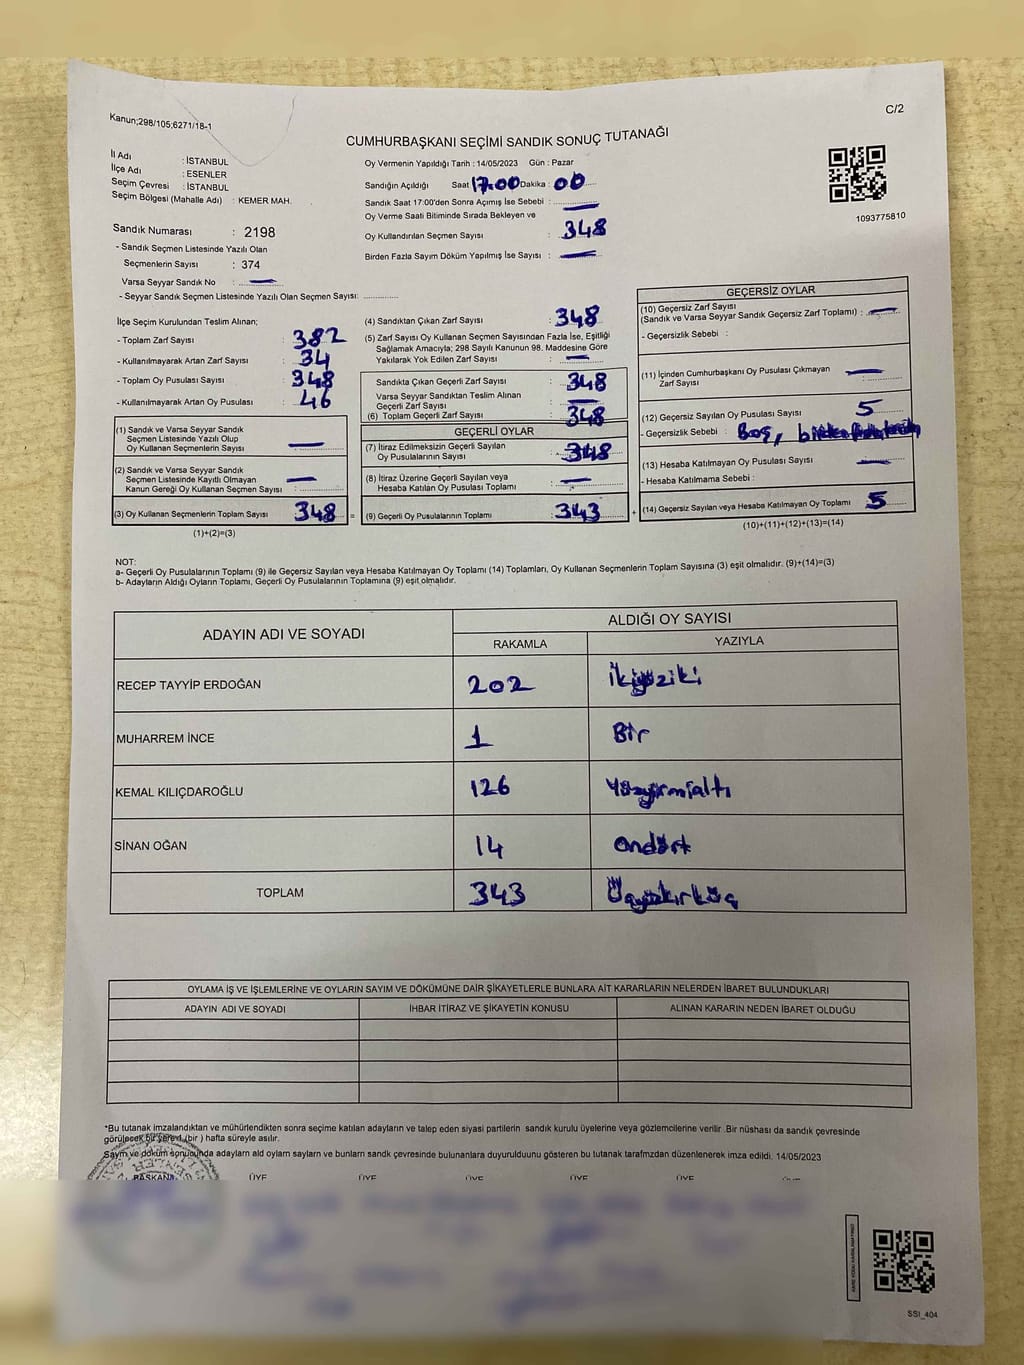 Kanun;298/105;6271/18-1
C/2
CUMHURBAŞKANI SEÇİMİ SANDIK SONUÇ TUTANAĞI
İl Adı : İSTANBUL
İlçe Adı : ESENLER
Seçim Çevresi : İSTANBUL
Seçim Bölgesi (Mahalle Adı) : KEMER MAH.
Sandık Numarası : 2198
- Sandık Seçmen Listesinde Yazılı Olan
Seçmenlerin Sayısı : 374
Varsa Seyyar Sandık No :
- Seyyar Sandık Seçmen Listesinde Yazılı Olan Seçmen Sayısı:
Oy Vermenin Yapıldığı Tarih : 14/05/2023 Gün : Pazar
Sandığın Açıldığı Saat 17.00 Dakika : 00
Sandık Saat 17:00'den Sonra Açımış İse Sebebi :
Oy Verme Saati Bitiminde Sırada Bekleyen ve
Oy Kullandırılan Seçmen Sayısı : 348
Birden Fazla Sayım Döküm Yapılmış İse Sayısı :
1093775810
İlçe Seçim Kurulundan Teslim Alınan;
- Toplam Zarf Sayısı : 382
- Kullanılmayarak Artan Zarf Sayısı : 34
- Toplam Oy Pusulası Sayısı : 348
- Kullanılmayarak Artan Oy Pusulası : 46
(1) Sandık ve Varsa Seyyar Sandık
Seçmen Listesinde Yazılı Olup
Oy Kullanan Seçmenlerin Sayısı :
(2) Sandık ve Varsa Seyyar Sandık
Seçmen Listesinde Kayıtlı Olmayan
Kanun Gereği Oy Kullanan Seçmen Sayısı :
(3) Oy Kullanan Seçmenlerin Toplam Sayısı : 348 =
(1)+(2)=(3)
(4) Sandıktan Çıkan Zarf Sayısı : 348
(5) Zarf Sayısı Oy Kullanan Seçmen Sayısından Fazla İse, Eşitliği
Sağlamak Amacıyla; 298 Sayılı Kanunun 98. Maddesine Göre
Yakılarak Yok Edilen Zarf Sayısı :
Sandıkta Çıkan Geçerli Zarf Sayısı : 348
Varsa Seyyar Sandıktan Teslim Alınan
Geçerli Zarf Sayısı :
(6) Toplam Geçerli Zarf Sayısı : 348
GEÇERLİ OYLAR
(7) İtiraz Edilmeksizin Geçerli Sayılan
Oy Pusulalarının Sayısı : 348
(8) İtiraz Üzerine Geçerli Sayılan veya
Hesaba Katılan Oy Pusulası Toplamı :
(9) Geçerli Oy Pusulalarının Toplamı : 343 +
GEÇERSİZ OYLAR
(10) Geçersiz Zarf Sayısı
(Sandık ve Varsa Seyyar Sandık Geçersiz Zarf Toplamı) :
- Geçersizlik Sebebi :
(11) İçinden Cumhurbaşkanı Oy Pusulası Çıkmayan
Zarf Sayısı :
(12) Geçersiz Sayılan Oy Pusulası Sayısı : 5
- Geçersizlik Sebebi : Boş,
(13) Hesaba Katılmayan Oy Pusulası Sayısı :
- Hesaba Katılmama Sebebi :
(14) Geçersiz Sayılan veya Hesaba Katılmayan Oy Toplamı : 5
(10)+(11)+(12)+(13)=(14)
NOT:
a- Geçerli Oy Pusulalarının Toplamı (9) ile Geçersiz Sayılan veya Hesaba Katılmayan Oy Toplamı (14) Toplamları, Oy Kullanan Seçmenlerin Toplam Sayısına (3) eşit olmalıdır. (9)+(14)=(3)
b- Adayların Aldığı Oyların Toplamı, Geçerli Oy Pusulalarının Toplamına (9) eşit olmalıdır.
ADAYIN ADI VE SOYADI
ALDIĞI OY SAYISI
RAKAMLA YAZIYLA
RECEP TAYYİP ERDOĞAN 202 ikiyüziki
MUHARREM İNCE 1 Bir
KEMAL KILIÇDAROĞLU 126 Yüzyirmialtı
SİNAN OĞAN 14 ondört
TOPLAM 343 Üçyüzkırküç
OYLAMA İŞ VE İŞLEMLERİNE VE OYLARIN SAYIM VE DÖKÜMÜNE DAİR ŞİKAYETLERLE BUNLARA AİT KARARLARIN NELERDEN İBARET BULUNDUKLARI
ADAYIN ADI VE SOYADI İHBAR İTİRAZ VE ŞİKAYETİN KONUSU ALINAN KARARIN NEDEN İBARET OLDUĞU
*Bu tutanak imzalandıktan ve mühürlendikten sonra seçime katılan adayların ve talep eden siyasi partilerin sandık kurulu üyelerine veya gözlemcilerine verilir .Bir nüshası da sandık çevresinde
görülecek bir yere 1 (bir ) hafta süreyle asılır.
Sayım ve döküm sonucunda adayların ald oyların sayları ve bunların sandk çevresinde bulunanlara duyurulduunu gösteren bu tutanak tarafmzdan düzenlenerek imza edildi. 14/05/2023
BAŞKAN ÜYE ÜYE ÜYE ÜYE ÜYE
SSI_404